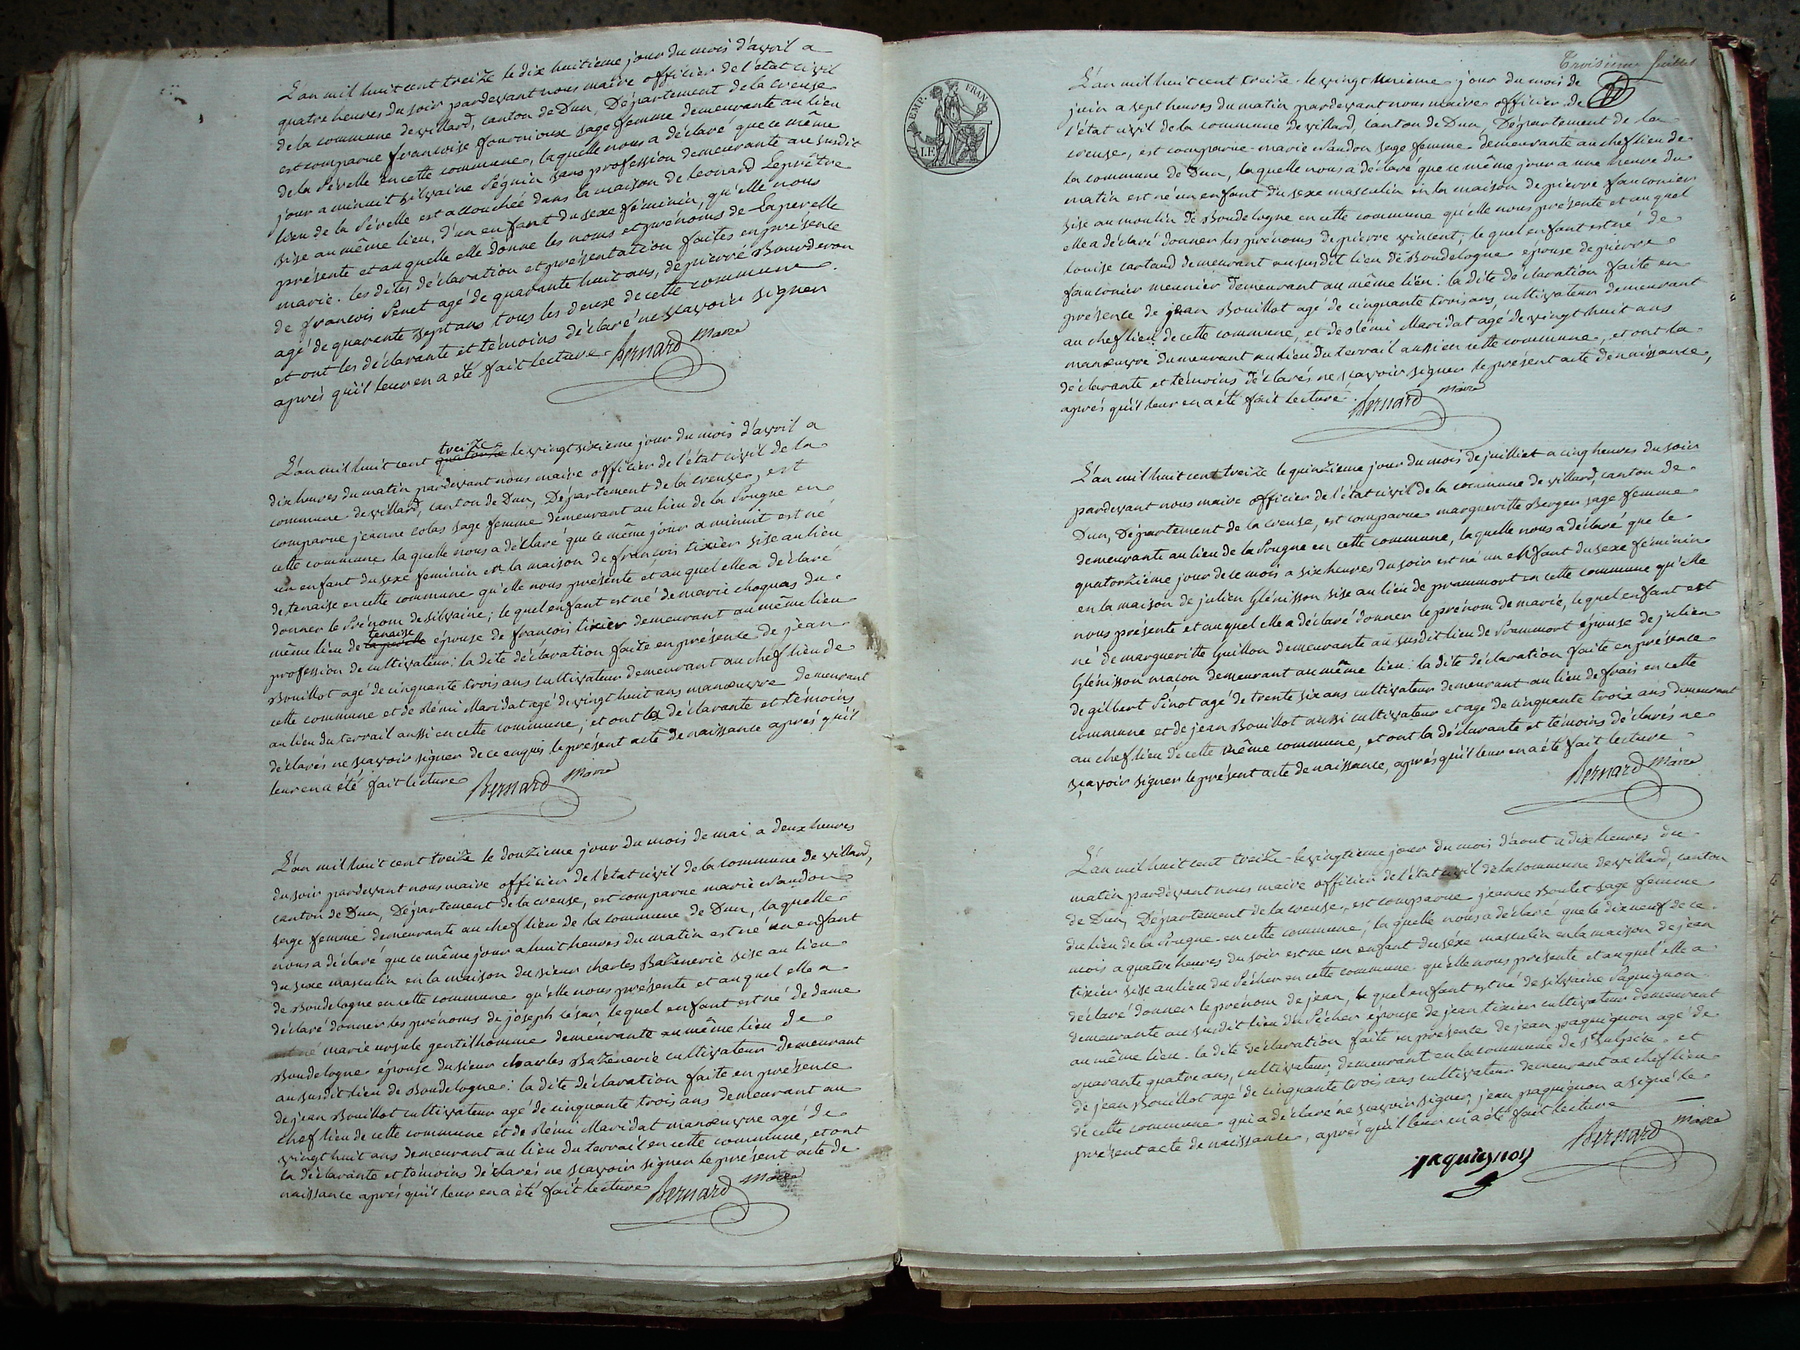 L'an mil huit cent treize le dix huitieme jour du mois d'avril a
quatre heures du soir pardevant nous maire officier de l'état civil
de la commune de villard, canton de Dun, Département de la creuse
est comparue francoise fournioux sage femme demeurante au lieu
de la Pérelle en cette commune, laquelle nous a déclaré que ce même
jour a minuit silvaine Péguin sans profession demeurante au susdit
lieu de la Pérelle est accouchée dans la maison de leonard Leprêtre
sise au même lieu, d'un enfant du sexe féminin, qu'elle nous
présente et auquelle elle donne les noms et prénoms de Laperelle
marie. les dites déclaration et présentation faites en présente
de françois Penet agé de quarante huit ans, de pierre Bourderon
agé de quarente sept ans tous les deux de cette commune
et ont les déclarante et témoins déclaré ne sçavoir signer
après qu'il leur en a été fait lecture Bernard Maire
L'an mil huit cent treize quatorze le vingt sixieme jour du mois d'avril a
dix heures du matin pardevant nous maire officier de l'état civil de la
commune de villard, canton de Dun, Département de la creuse, est
comparue jeanne colas sage femme demeurant au lieu de la Pougne en
cette commune laquelle nous a déclaré que ce même jour a minuit est né
un enfant du sexe feminin en la maison de françois tixier sise au lieu
de tenaise en cette commune qu'elle nous présente et auquel elle a déclaré
donner le Prénom de silvaine; le quel enfant est né de marie choquas du
même lieu de tenaise épouse de françois tixier demeurant au même lieu
profession de cultivateur: la dite déclaration faite en présence de jean
Bouillot agé de cinquante trois ans cultivateur demeurant au chef lieu de
cette commune et de Rémi Maridat agé de vingt huit ans manœuvre demeurant
au lieu du terrail aussi en cette commune; et ont la déclarante et témoins
déclarés ne sçavoir signer de ce enquis le présent acte de naissance après qu'il
leur en a été fait lecture Bernard Maire
L'an mil huit cent treize le douzieme jour du mois de mai a deux heures
du soir pardevant nous maire officier de l'état civil de la commune de villard,
canton de Dun, Département de la creuse, est comparue marie Naudon
sage femme demeurante au chef lieu de la commune de Dun, laquelle
nous a déclaré que ce même jour a huit heures du matin est né un enfant
du sexe masculin en la maison du sieur charles Bazenerie sise au lieu
de Boudelogne en cette commune qu'elle nous présente et auquel elle a
déclaré donner les prénoms de joseph César lequel enfant est né de dame
marie ursule gentilhomme demeurante au même lieu de
Boudelogne épouse du sieur charles Bazenerie cultivateur demeurant
au susdit lieu de Boudelogne: la dite déclaration faite en présence
de jean Bouillot cultivateur agé de cinquante trois ans demeurant au
chef lieu de cette commune et de Rémi Maridat manœuvre agé de
vingt huit ans demeurant au lieu du terrail en cette commune, et ont
la déclarante et témoins déclarés ne sçavoir signer le présent acte de
naissance après qu'il leur en a été fait lecture Bernard Maire
Troisieme feuillet
EMP. FRAN.
LE
L'an mil huit cent treize le vingt jour du mois de
juin a sept heures du matin pardevant nous maire officier de
l'état civil de la commune de villard, canton de Dun, Département de la
creuse, est comparue marie Naudon sage femme demeurante au chef lieu de
la commune de Dun, laquelle nous a déclaré que ce même jour a une heure du
matin est né un enfant du sexe masculin en la maison de pierre fauconier
sise au moulin de Boudelogne en cette commune qu'elle nous présente et auquel
elle a déclaré donner les prénoms de pierre vincent, le quel enfant est né de
louise cartaud demeurant au susdit lieu de Boudelogne épouse de pierre
fauconier meunier demeurant au même lieu: la dite déclaration faite en
présence de jean Bouillot agé de cinquante trois ans, cultivateur demeurant
au chef lieu de cette commune, et de Rémi Maridat agé de vingt huit ans
manœuvre demeurant au lieu du terrail aussi en cette commune, et ont la
déclarante et témoins déclarés ne sçavoir signer le présent acte de naissance,
après qu'il leur en a été fait lecture. Bernard Maire
L'an mil huit cent treize le quinzieme jour du mois de juilliet a cinq heures du soir
pardevant nous maire officier de l'état civil de la commune de villard, canton de
Dun, Département de la creuse, est comparue margueritte Berger sage femme
demeurante au lieu de la Pougne en cette commune, laquelle nous a déclaré que le
quatorzieme jour de ce mois a six heures du soir est né un enfant du sexe féminin
en la maison de julien Glénisson sise au lieu de prammort en cette commune qu'elle
nous présente et auquel elle a déclaré donner le prénom de marie, lequel enfant est
né de margueritte Guillon demeurante au susdit lieu de Prammort épouse de julien
Glénisson maçon demeurant au même lieu: la dite déclaration faite en présence
de gilbert Pinot agé de trente six ans cultivateur demeurant au lieu de frais en cette
commune et de jean Bouillot aussi cultivateur et agé de cinquante trois ans demeurant
au chef lieu de cette même commune, et ont la déclarante et témoins déclarés ne
sçavoir signer le présent acte de naissance, après qu'il leur en a été fait lecture
Bernard Maire
L'an mil huit cent treize le vingtieme jour du mois d'aout a dix heures du
matin pardevant nous maire officier de l'état civil de la commune de villard, canton
de Dun, Département de la creuse, est comparue jeanne Boulet sage femme
du lieu de la Pougne en cette commune; la quelle nous a déclaré que le dix neuf de ce
mois a quatre heures du soir est né un enfant du séxe masculin en la maison de jean
tixier sise au lieu du Pécher en cette commune qu'elle nous présente et auquel elle a
déclaré donner le prénom de jean, le quel enfant est né de silvaine Paquignon
demeurante au susdit lieu du Pécher épouse de jean tixier cultivateur demeurant
au même lieu. la dite déclaration faite en présence de jean paquignon agé de
quarante quatre ans, cultivateur, demeurant en la commune de Bulxière et
de jean Bouillot agé de cinquante trois ans cultivateur demeurant au chef lieu
de cette commune qui a déclaré ne sçavoir signer, jean paquignon a signé le
présent acte de naissance, après qu'il leur en a été fait lecture
paquignon Bernard Maire